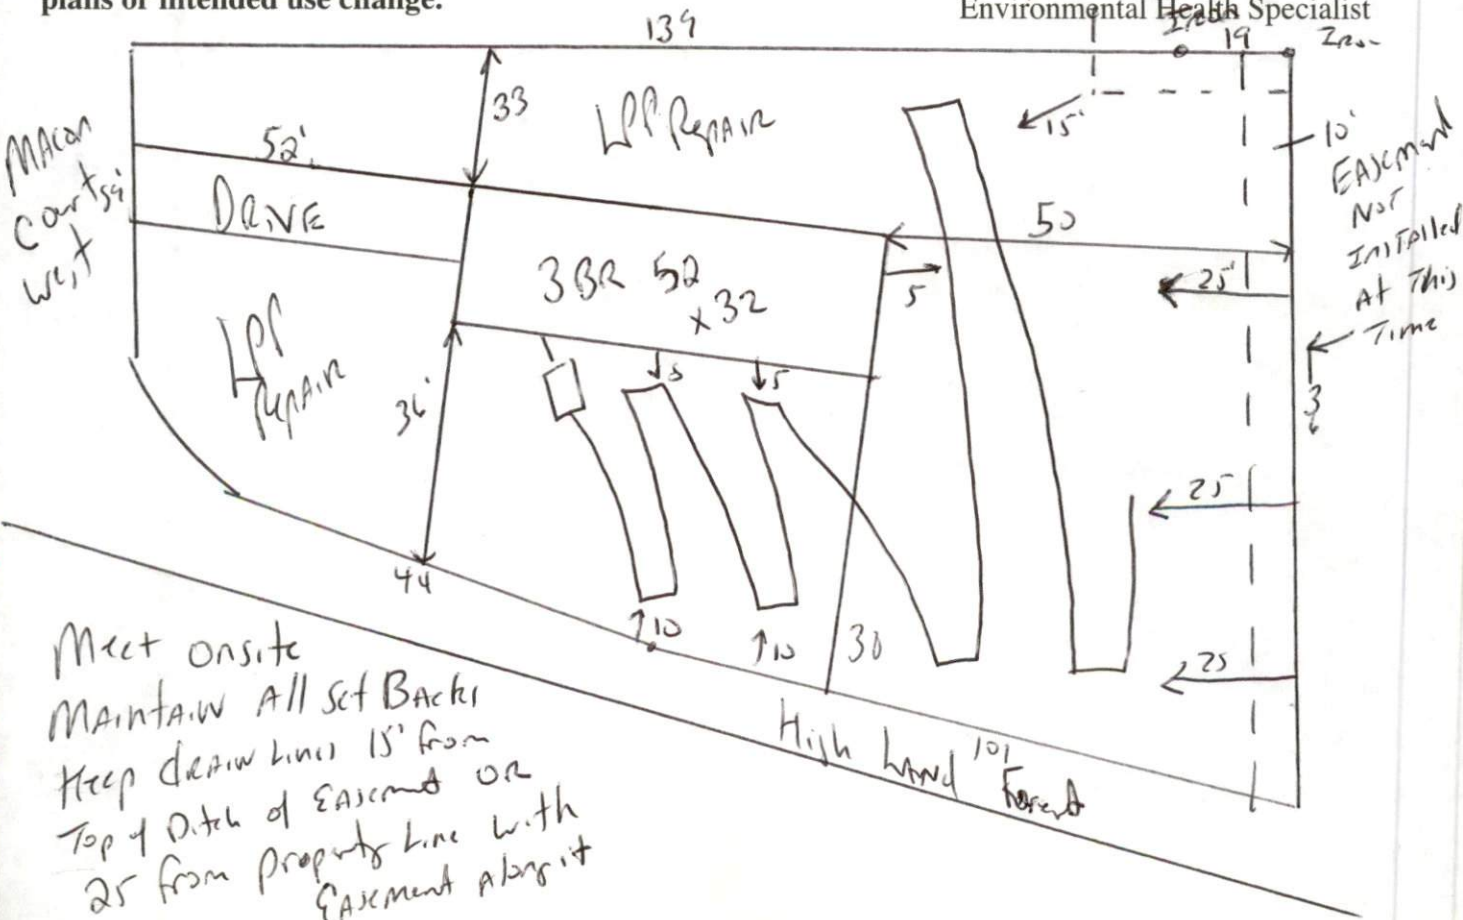 plans or intended use change.
Environmental Health Specialist
139
Iron
19
Iron
33
LPP Repair
15'
10'
Easement
Not
Installed
At This
Time
Macon
Court
West
52'
Drive
50
3BR 52
x 32
5
25'
LPP
Repair
36'
5
5
25
44
10
10
30
25
High Land
101
Forest
Meet onsite
Maintain All Set Backs
Keep drain Lines 15' from
Top of Ditch of Easement OR
25 from Property Line with
Easement Along it